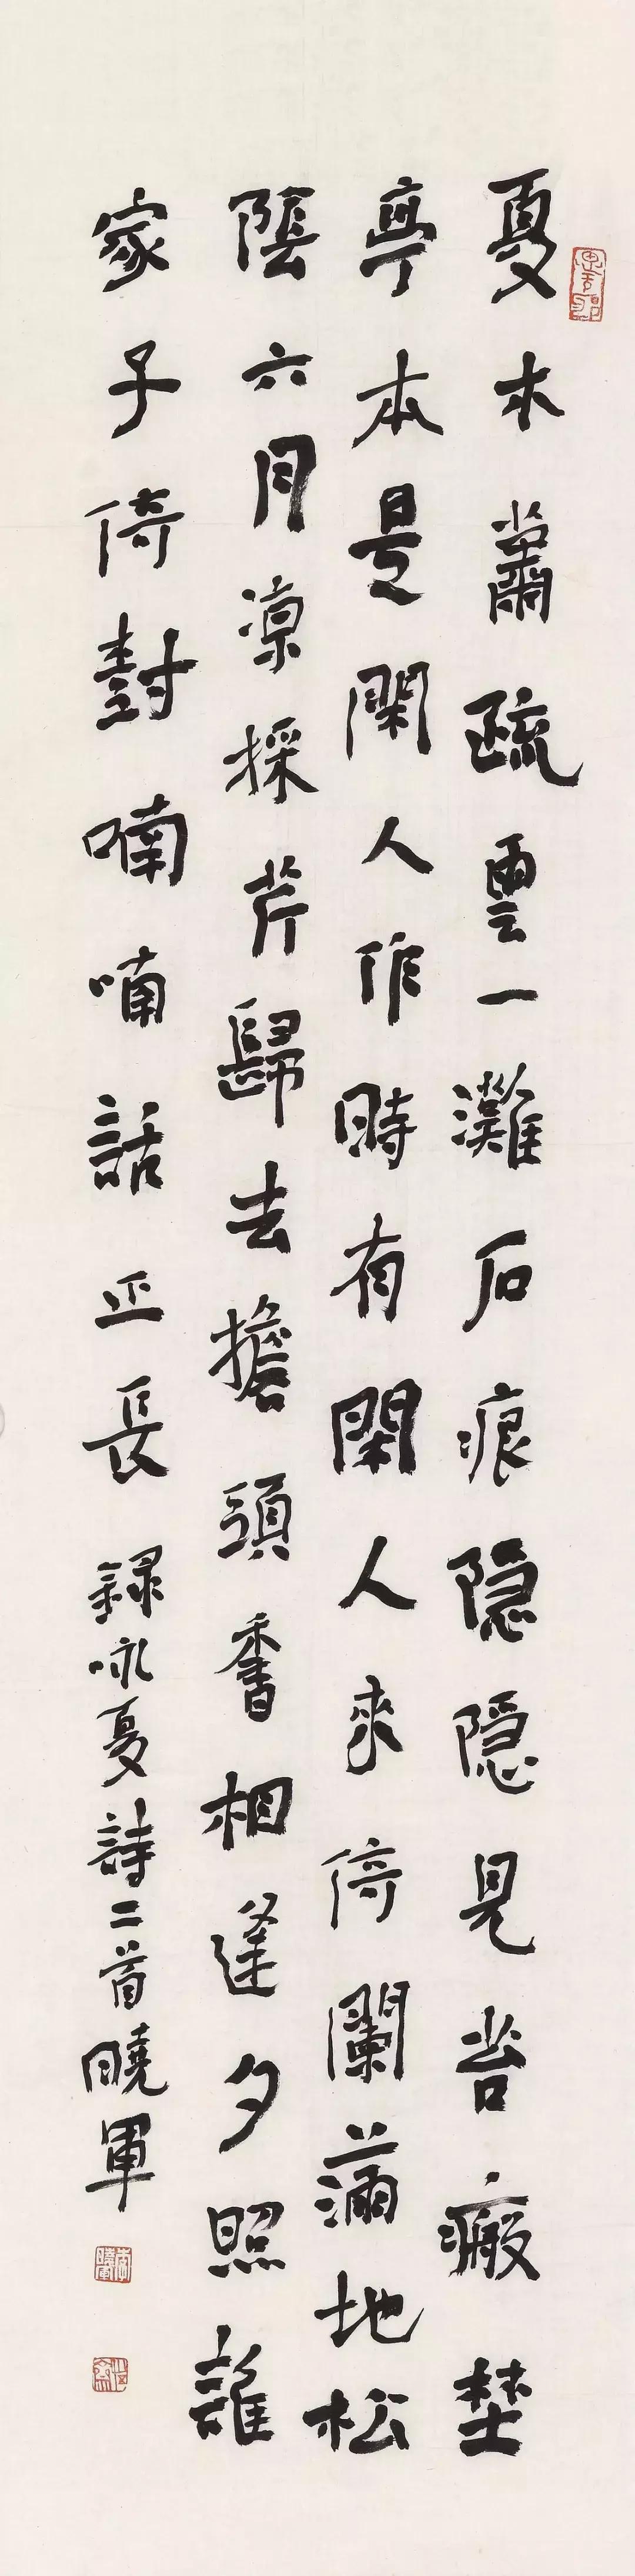 夏木蕭疏雲一灘石痕隐隐見苔瘢埜
亭本是閑人作時有閑人来倚闌滿地松
陰六月凉採芹歸去擔頭香相逢夕照誰
家子倚樹喃喃話正長
録咏夏詩二首曉軍